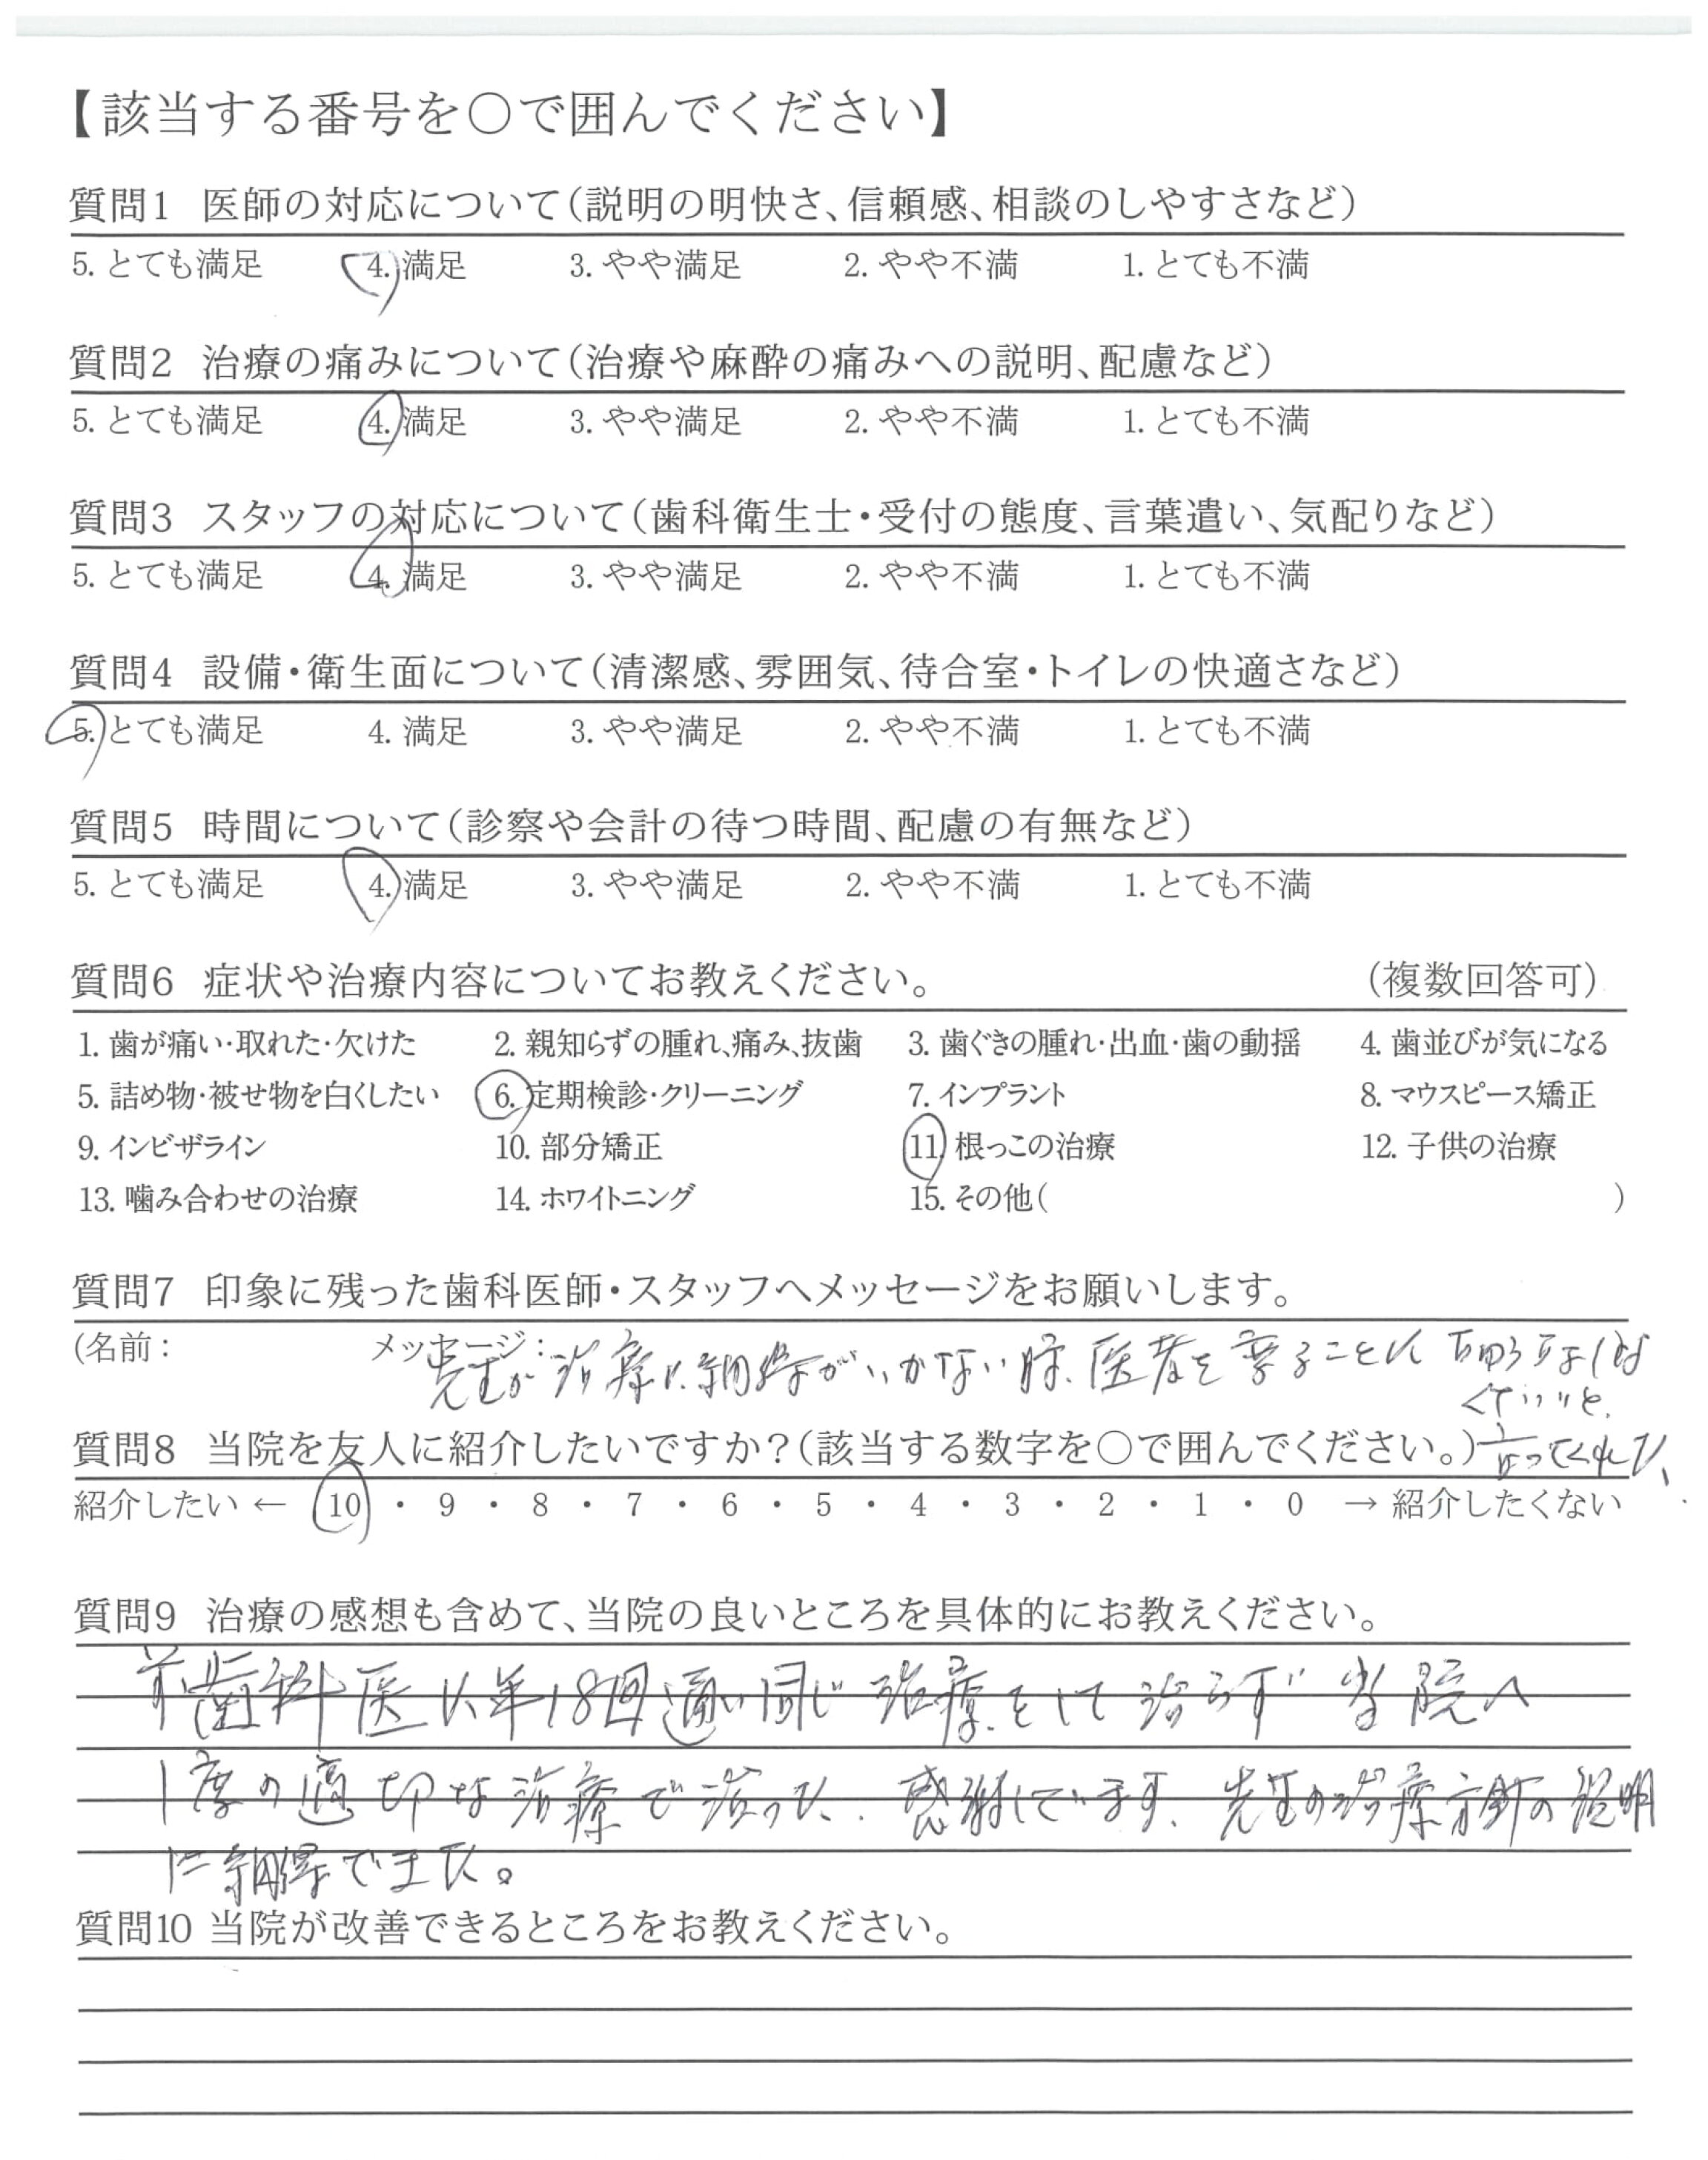 【該当する番号を○で囲んでください】
質問1 医師の対応について(説明の明快さ、信頼感、相談のしやすさなど)
5. とても満足 4. 満足 3. やや満足 2. やや不満 1. とても不満
質問2 治療の痛みについて(治療や麻酔の痛みへの説明、配慮など)
5. とても満足 4. 満足 3. やや満足 2. やや不満 1. とても不満
質問3 スタッフの対応について(歯科衛生士・受付の態度、言葉遣い、気配りなど)
5. とても満足 4. 満足 3. やや満足 2. やや不満 1. とても不満
質問4 設備・衛生面について(清潔感、雰囲気、待合室・トイレの快適さなど)
5. とても満足 4. 満足 3. やや満足 2. やや不満 1. とても不満
質問5 時間について(診察や会計の待つ時間、配慮の有無など)
5. とても満足 4. 満足 3. やや満足 2. やや不満 1. とても不満
質問6 症状や治療内容についてお教えください。 (複数回答可)
1. 歯が痛い・取れた・欠けた 2. 親知らずの腫れ、痛み、抜歯 3. 歯ぐきの腫れ・出血・歯の動揺 4. 歯並びが気になる
5. 詰め物・被せ物を白くしたい 6. 定期検診・クリーニング 7. インプラント 8. マウスピース矯正
9. インビザライン 10. 部分矯正 11. 根っこの治療 12. 子供の治療
13. 噛み合わせの治療 14. ホワイトニング 15. その他( )
質問7 印象に残った歯科医師・スタッフへメッセージをお願いします。
(名前: メッセージ:
先生が治療に納得がいかない時、医者を変えることに
くていいと、
質問8 当院を友人に紹介したいですか?(該当する数字を○で囲んでください。)
言ってくれた、
紹介したい ← 10 ・ 9 ・ 8 ・ 7 ・ 6 ・ 5 ・ 4 ・ 3 ・ 2 ・ 1 ・ 0 → 紹介したくない
質問9 治療の感想も含めて、当院の良いところを具体的にお教えください。
前歯科医に年18回通い同じ治療をして治らず当院へ
1度の適切な治療で治った。感謝しています。先生の治療方針の説明
に納得できた。
質問10 当院が改善できるところをお教えください。